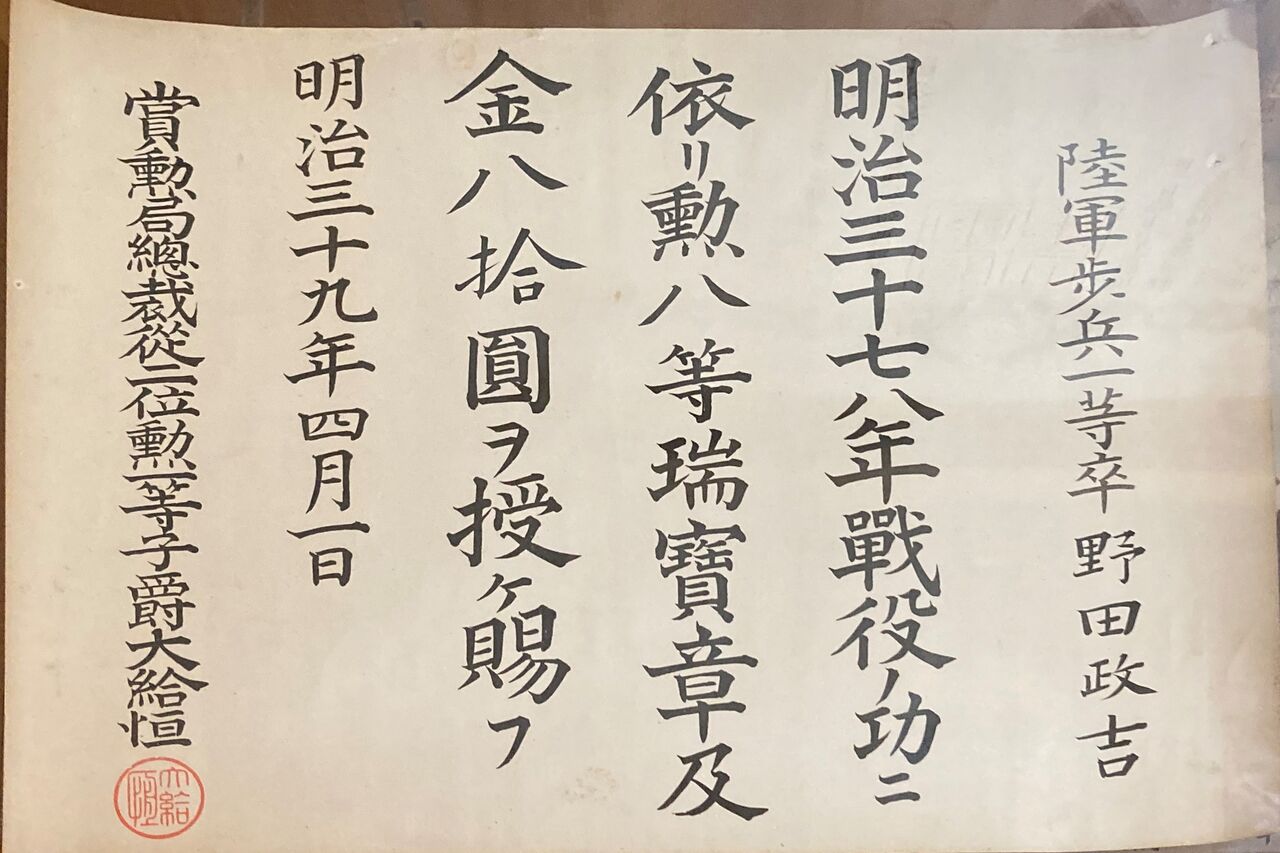 陸軍歩兵一等卒野田政吉
明治三十七八年戰役ノ功ニ
依リ勲八等瑞寶章及
金八拾圓ヲ授ケ賜フ
明治三十九年四月一日
賞勲局總裁從二位勲一等子爵大給恒
大給恒